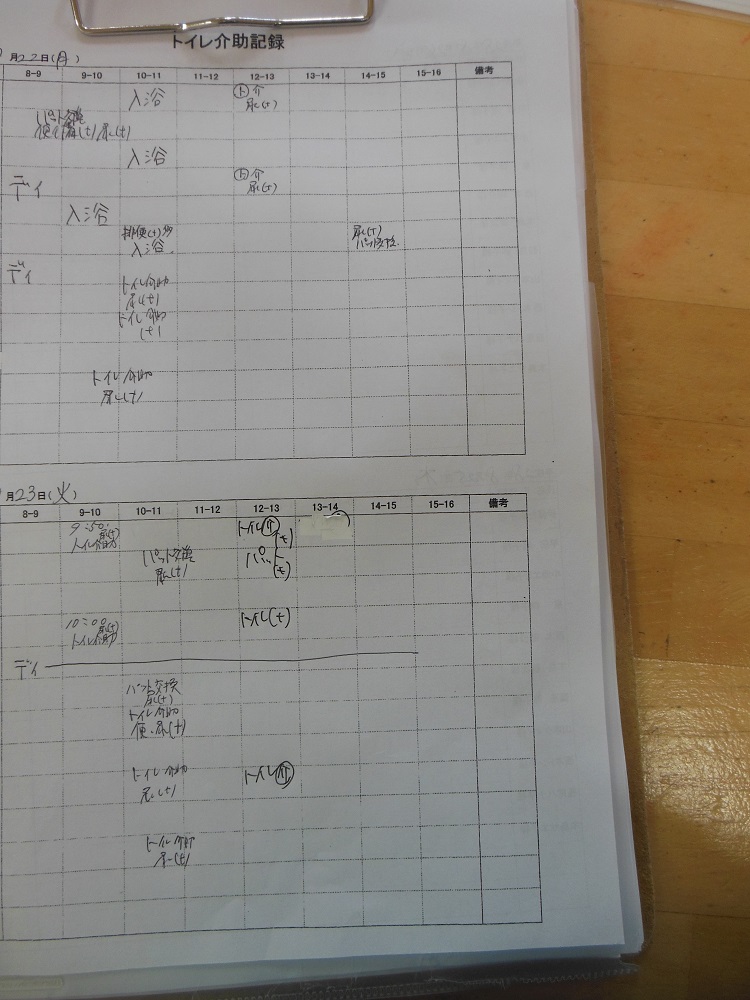 トイレ介助記録
月22日(月)
8-9 9-10 10-11 11-12 12-13 13-14 14-15 15-16 備考
入浴 ト介
尿(+)
パット交換
尿(+)
入浴
デイ ト介
尿(+)
入浴
排便(+)
入浴
尿(+)
パット交換
デイ
トイレ介助
尿(+)
トイレ介助
(+)
トイレ介助
尿(+)
月23日(火)
8-9 9-10 10-11 11-12 12-13 13-14 14-15 15-16 備考
9:50
尿(+)
トイレ介助
トイレ介
(+)
パット交換
尿(+)
パット
(+)
10:00
尿(+)
トイレ介助
トイレ(+)
デイ
パット交換
尿(+)
トイレ介助
便、尿(+)
トイレ介助
尿(+)
トイレ介
トイレ介助
尿(+)